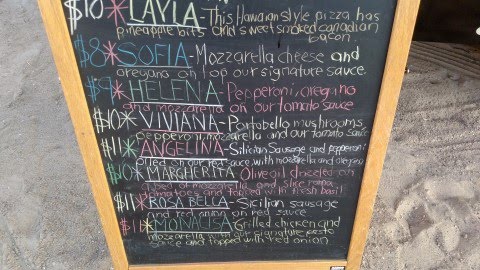 $10*LAYLA-This Hawaiian style pizza has
pineapple bits and sweet smoked canadian
bacon.
$8*SOFIA-Mozzarella cheese and
oregano on top our signature sauce.
$9*HELENA-Pepperoni, oregino
and mozzarella on our tomato sauce
$10*VIVIANA-Portobello mushrooms
pepperoni, mozzarella and our tomato sauce
$11*ANGELINA-Silician Sausage and pepperoni
piled on our red sauce with mozzarella and oregino
$10*MARGHERITA Olive oil drizzled on
a bed of mozzarella and slice roma
tomatoes and topped with fresh basil
$11*ROSA BELLA-Sicilian sausage
and red onion on red sauce
*MONALISA-Grilled chicken and
mozzarella with our signature pesto
sauce and topped with red onion